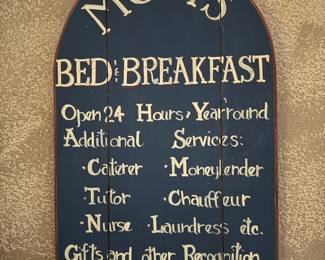 MOM'S
BED & BREAKFAST
Open 24 Hours · Year'round
Additional Services:
·Caterer ·Moneylender
·Tutor ·Chauffeur
·Nurse ·Laundress etc.
Gifts and other Recognition